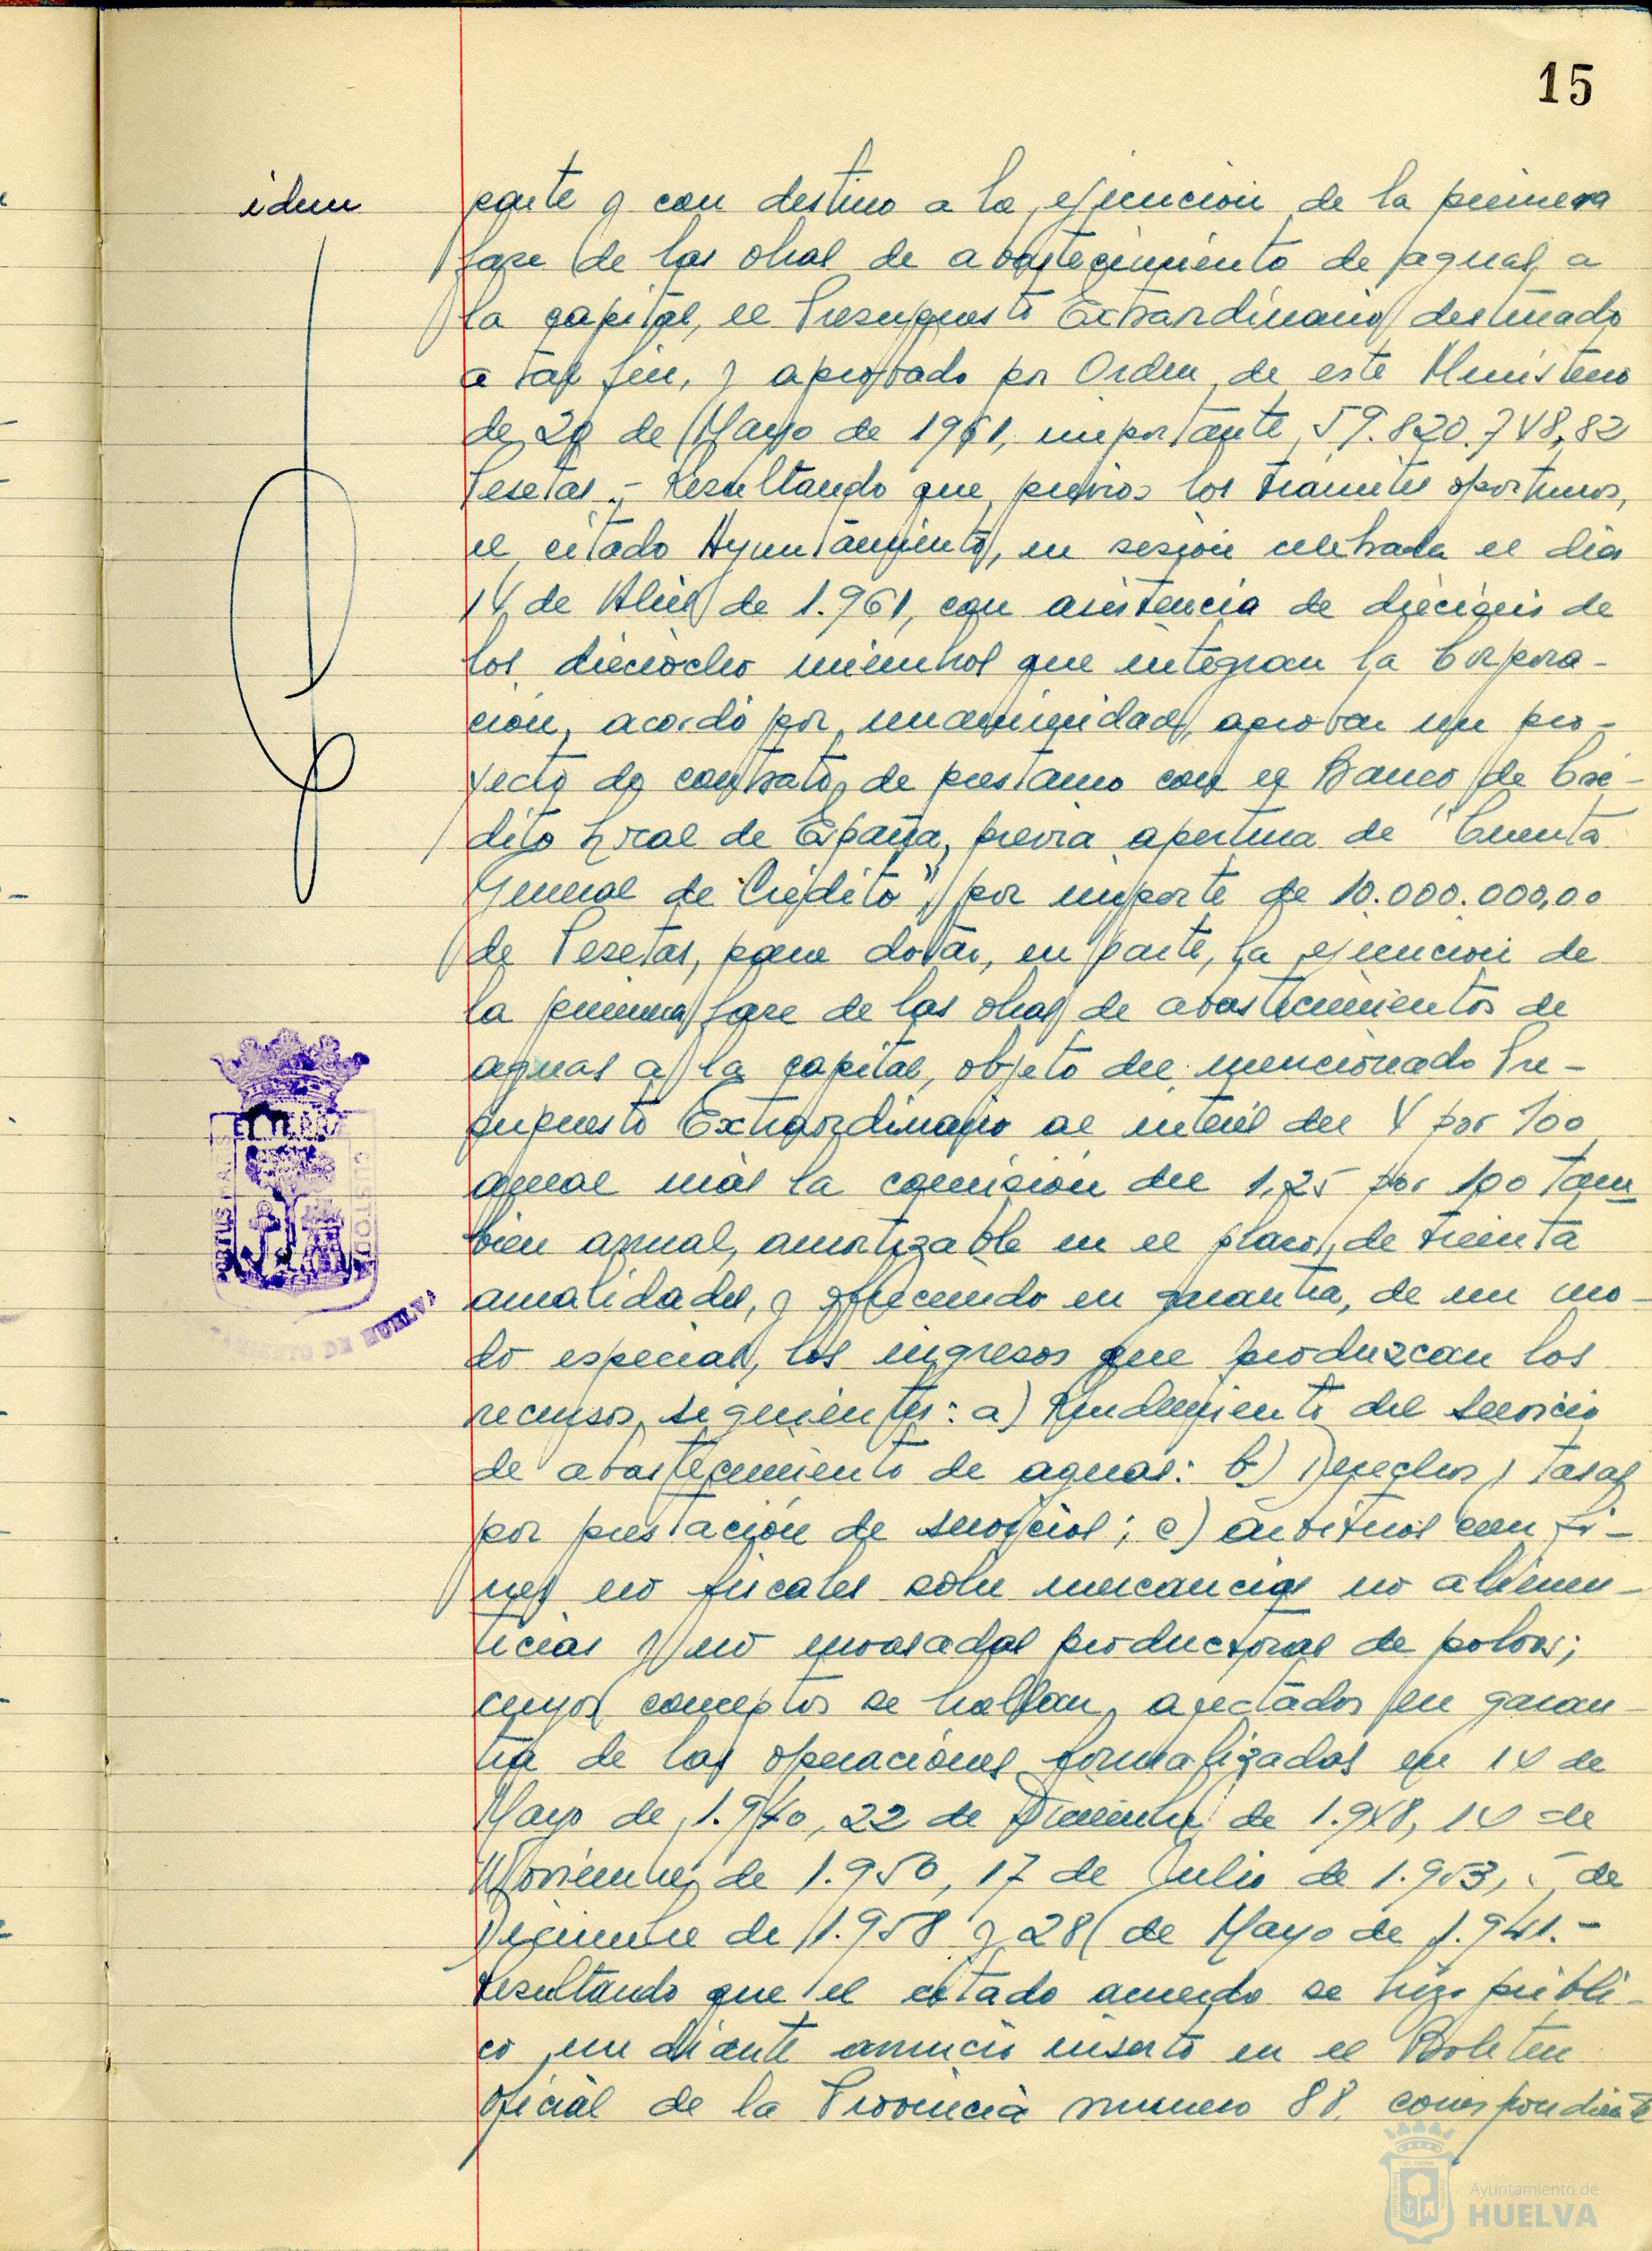 15
idem
parte y con destino a la ejecucion de la primera
fase de las obras de abastecimiento de aguas a
la capital, el Presupuesto Extraordinario destinado
a tal fin, y aprobado por Orden de este Ministerio
de 20 de Mayo de 1961, importante 59.820.748,82
Pesetas.- Resultando que, previos los trámites oportunos,
el citado Ayuntamiento, en sesión celebrada el dia
14 de Abril de 1.961, con asistencia de dieciseis de
los dieciocho miembros que integran la Corpora-
ción, acordó por unanimidad, aprobar un pro-
yecto de contrato de prestamo con el Banco de Cré-
dito Local de España, previa apertura de "Cuenta
General de Crédito", por importe de 10.000.000,00
de Pesetas, para dotar, en parte, la ejecucion de
la primera fase de las obras de abastecimientos de
aguas a la capital, objeto del mencionado Pre-
supuesto Extraordinario al interés del 4 por 100
anual más la comisión del 1,25 por 100 tam
bien anual, amortizable en el plazo, de treinta
anualidades, y ofreciendo en garantia, de un mo-
do especial, los ingresos que produzcan los
recursos siguientes: a) Rendimiento del servicio
de abastecimiento de aguas: b) Derechos y tasas
por prestación de servicios; c) arbitrios con fi-
nes no fiscales sobre mercancias no alimen-
ticias y no envasadas productoras de polvos;
cuyos conceptos se hallan, afectados en garan-
tia de las operaciones formalizadas en 14 de
Mayo de 1.940, 22 de Diciembre de 1.948, 14 de
Noviembre de 1.950, 17 de Julio de 1.953, 5 de
Diciembre de 1.958 y 28 de Mayo de 1.941.-
Resultando que el citado acuerdo se hizo públi-
co mediante anuncio inserto en el Boletin
oficial de la Provincia numero 88 correspondiente
PORTUS MARIS
CUSTODIA
AMIENTO DE HUELVA
Ayuntamiento de
HUELVA